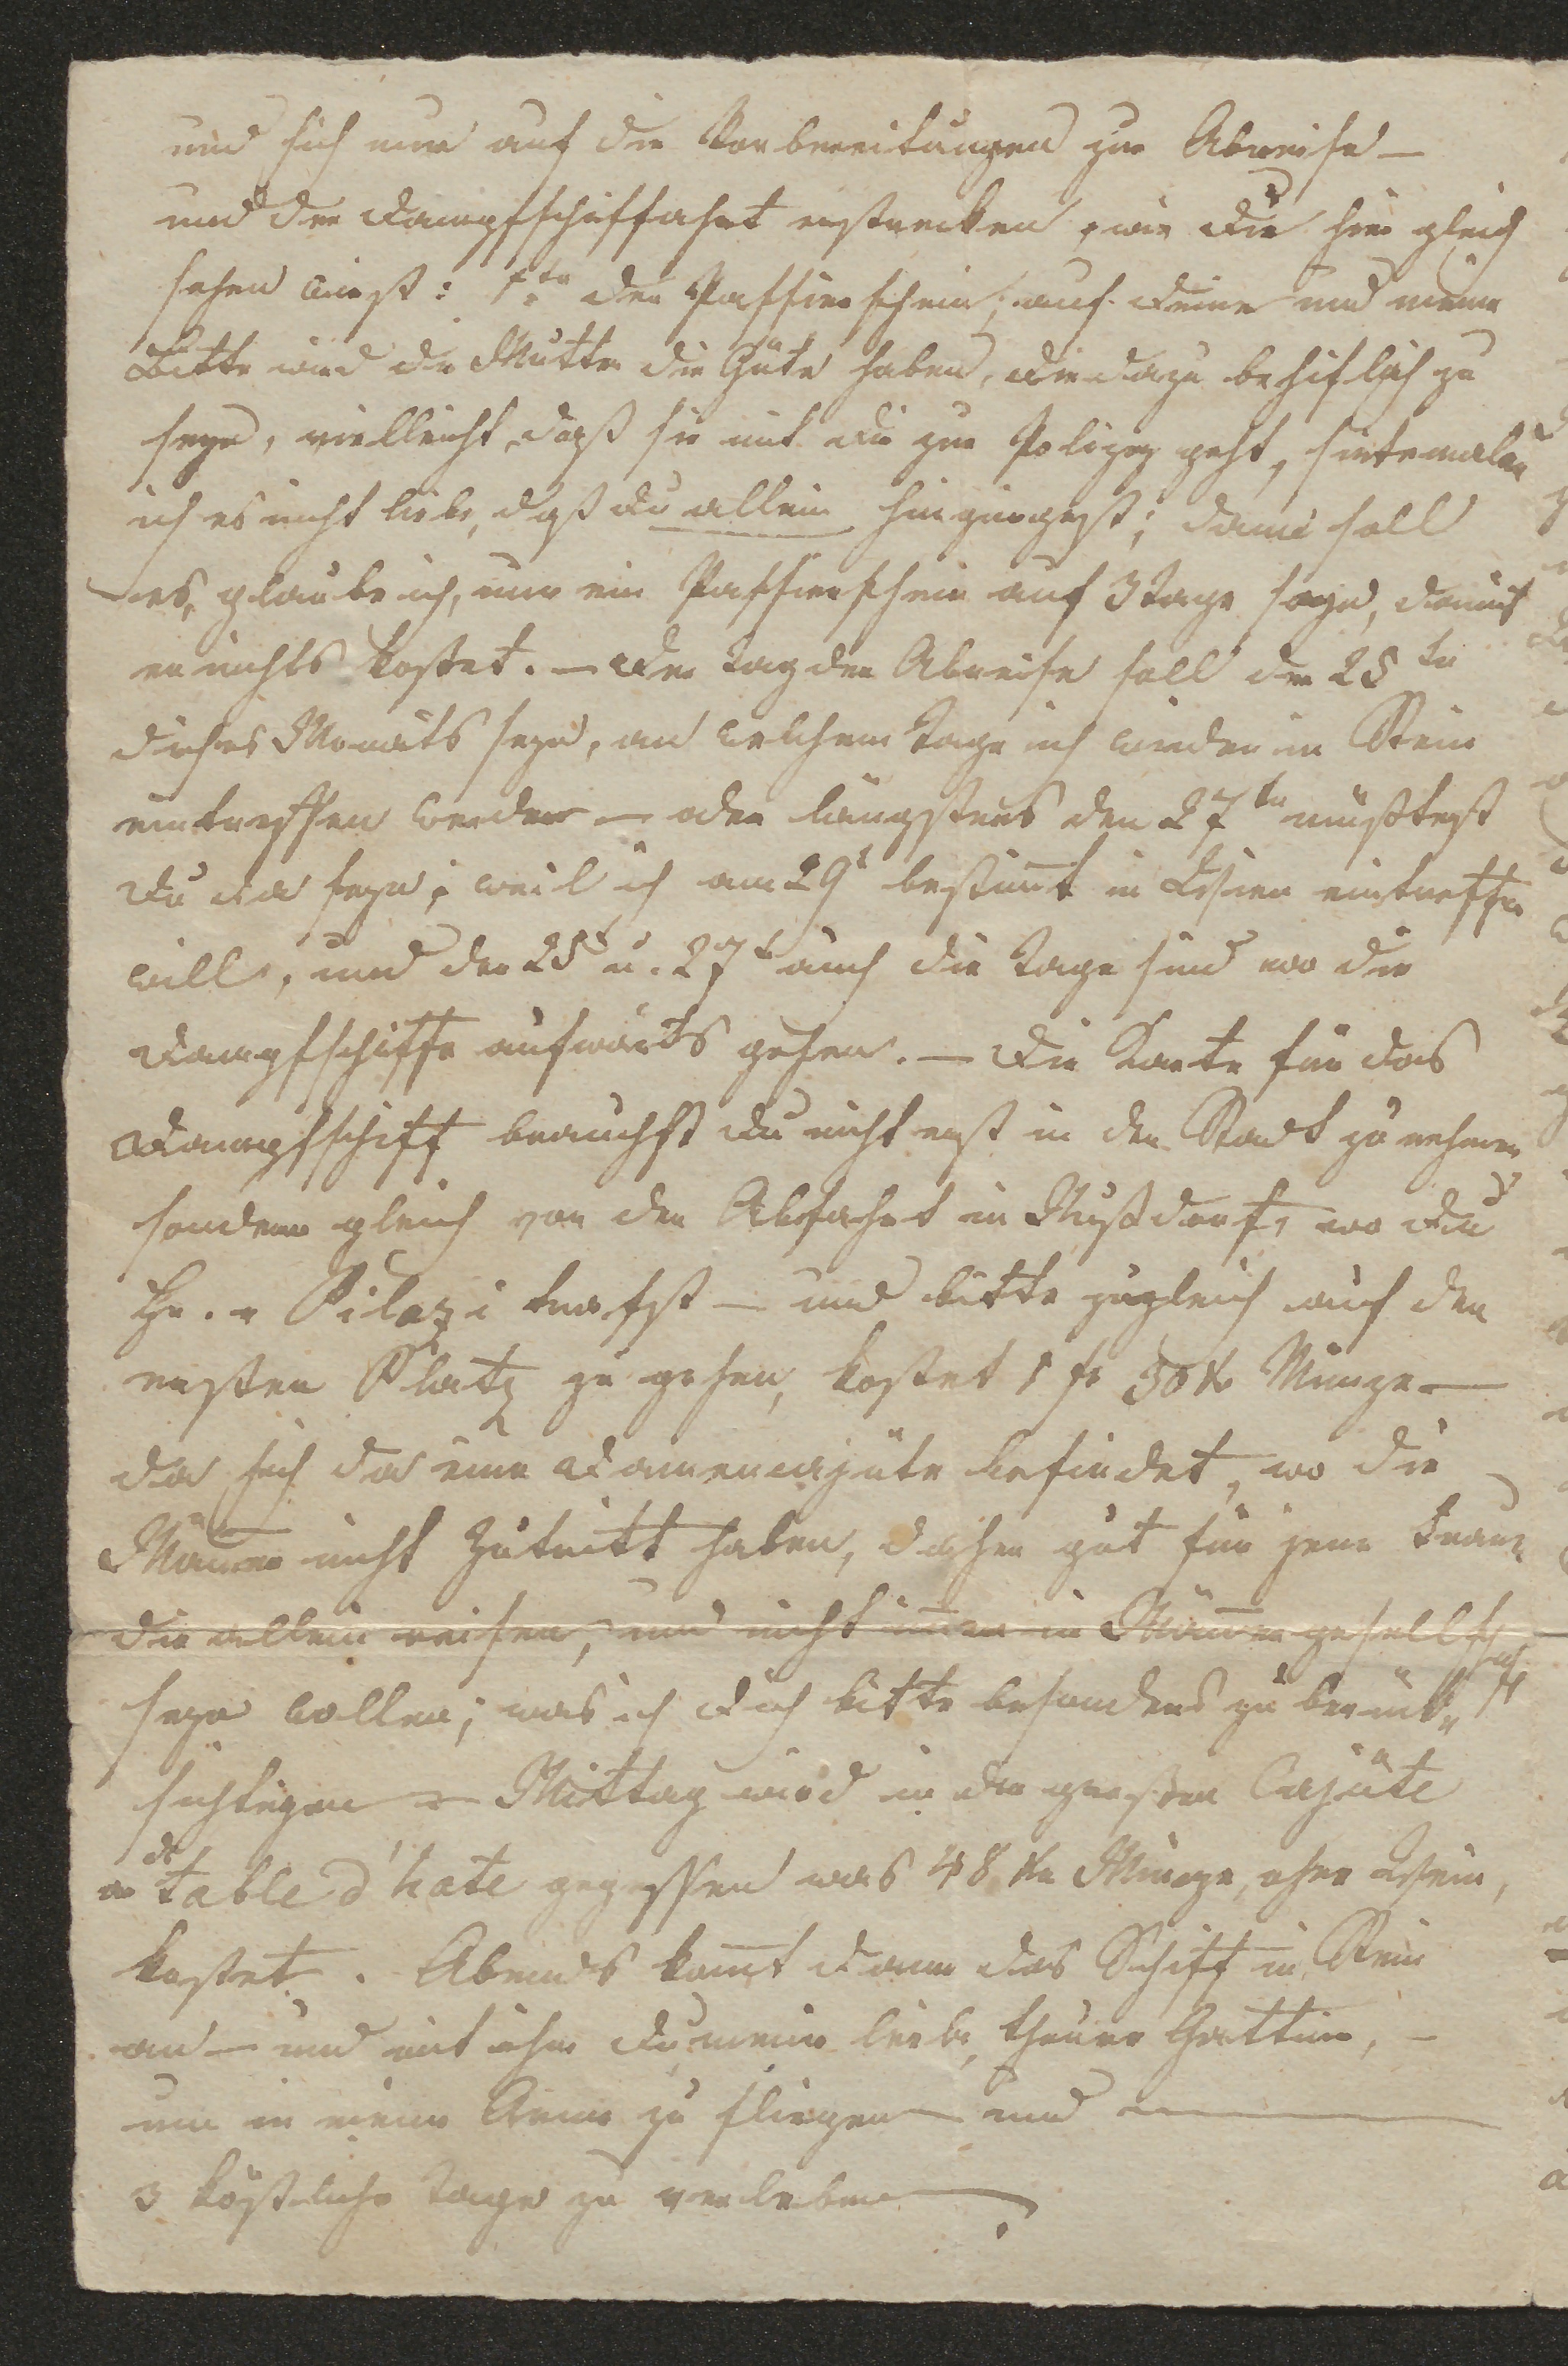 und sich nur auf die Vorbereitungen zur Abreise –
und der Dampfschiffahrt erstrecken, wie Du hier gleich
sehen wirst: 1tens der Passierschein; auf Deine und meine
Bitte wird die Mutter die Güte haben, Dir dazu behiflich zu
seyn, vielleicht, daß sie mit Dir zur Polizey geht, sintemalen
ich es nicht liebe, daß Du allein hingingest; dann soll
es, glaube ich, nur ein Passierschein auf 3 Tage seyn, damit
er nichts kostet. – Der Tag der Abreise soll der 25te
dieses Monats seyn, an welchem Tage ich wieder in Stein
eintreffen werde – oder längstens den 27ten müßtest
Du da seyn; weil ich am 29t bestim̅t in Wien eintreffen
will, und der 25t u. 27t auch die Tage sind wo die
Dampfschiffe aufwärts gehen. – Die Karte für das
Dampfschiff brauchst Du nicht erst in der Stadt zu nehmen
sondern gleich vor der Abfahrt in Nußdorf, wo Du
Hr. v Pilazi trefst – und bitte zugleich auf den
ersten Platz zu gehen, kostet 1 fr 50 kr Münze –
da sich da eine Damencajüte befindet, wo die
Män̅er nicht Zutritt haben, daher gut für jene Frauen
die allein reisen, und nicht im̅er in Män̅ergesellschaft
seyn wollen; was ich Dich bitte besonders zu berück-
sichtigen – Mittag wird in der großen Cajüte
a de table d'hate gegessen was 48 kr Münze, ohne Wein,
kostet. Abends kom̅t dann das Schiff in Stein
an – und mit ihm Du, meine liebe, theure Gattin, –
um in meine Arme zu fliegen – und –
3 köstliche Tage zu verleben – .